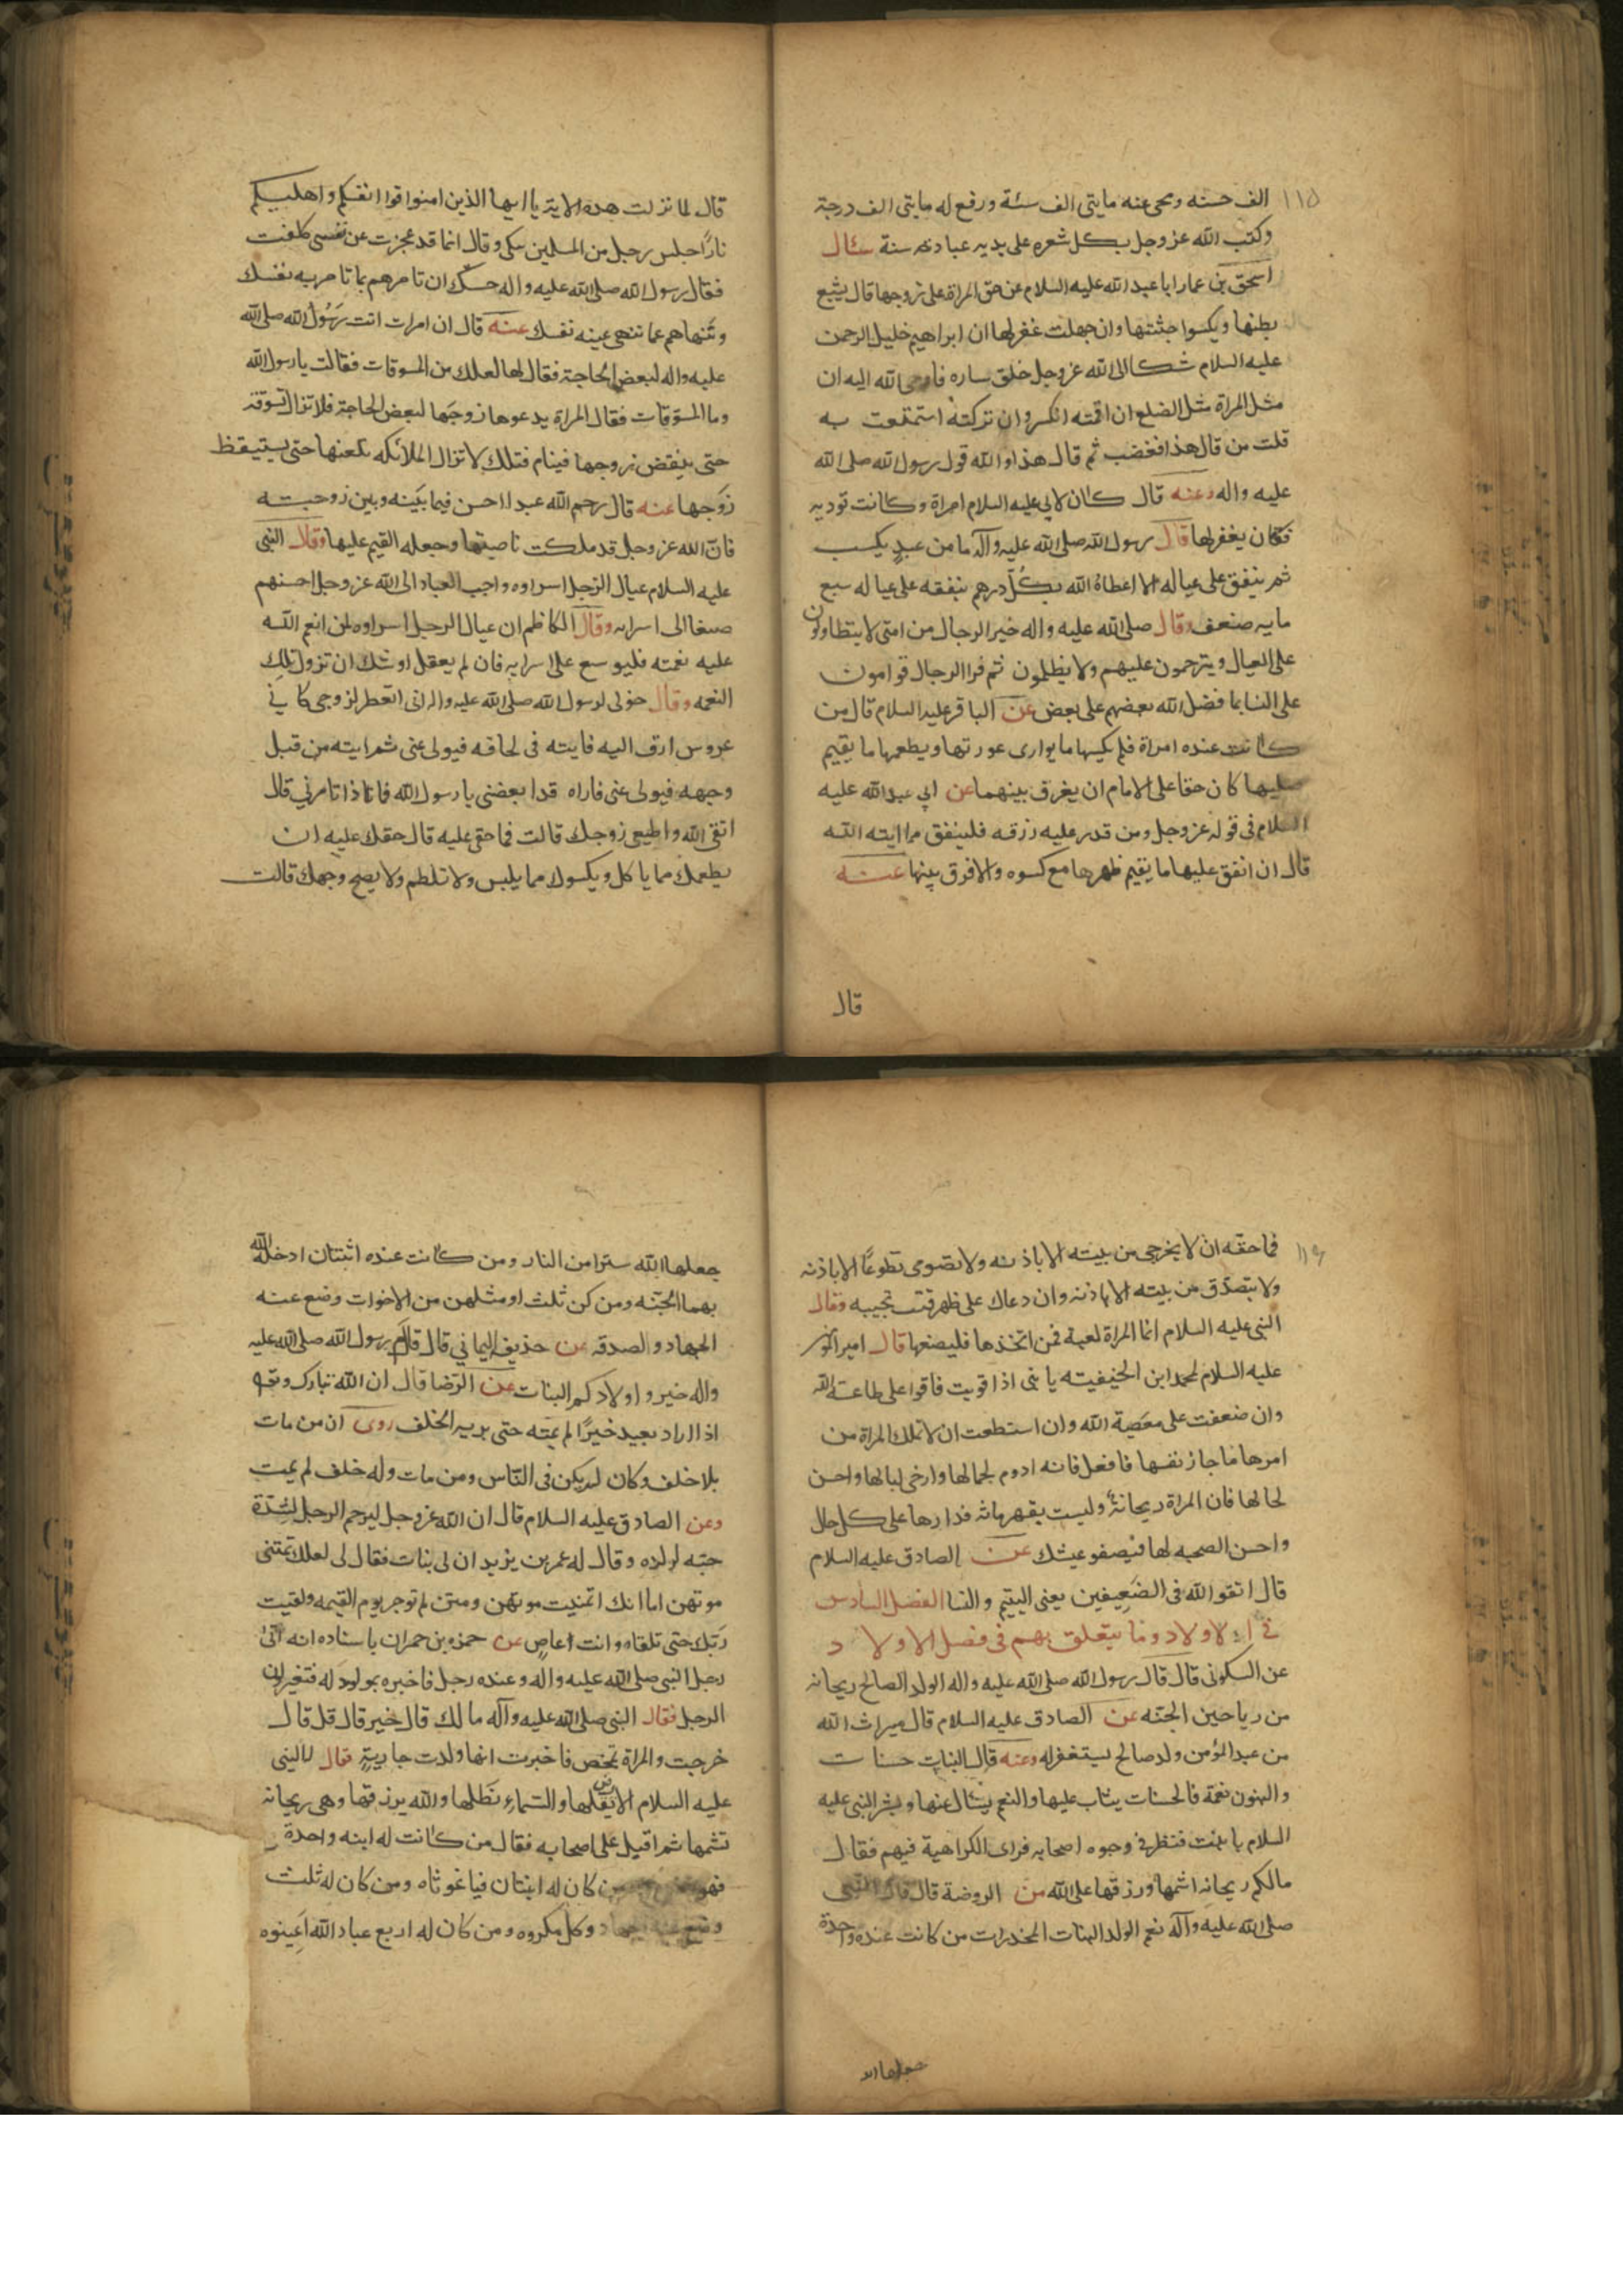 ١١٥
الف حسنه ومحى عنه مايتى الف سئة ورفع له مايتى الف درجة
وكتب الله عز وجل بكل شعره على بدنه عبادة سنة سئال
اسحق بن عمار ابا عبد الله عليه السلام عن حق المراة على زوجها قال يشبع
بطنها ويكسوا جثتها وان جهلت غفر لها ان ابراهيم خليل الرحمن
عليه السلام شكا الى الله عز وجل خلق ساره فاوحى الله اليه ان
مثل المراة مثل الضلع ان اقمته انكسر وان تركته استمتعت به
قلت من قال هذا فغضب ثم قال هذا والله قول رسول الله صلى الله
عليه واله وعنه قال كان لابى عليه السلام امراة وكانت توذيه
فكان يغفر لها قال رسول الله صلى الله عليه وآله ما من عبد يكسب
ثم ينفق على عياله الا اعطاه الله بكل درهم ينفقه على عياله سبع
مايه ضعف وقال صلى الله عليه واله خير الرجال من امتى لا يتطاولون
على العيال ويترحمون عليهم ولا يظلمون ثم قرا الرجال قوامون
على النسا بما فضل الله بعضهم على بعض عن الباقر عليه السلام قال من
كانت عنده امراة فلم يكسها ما يوارى عورتها ويطعمها ما يقيم
صلبها كان حقا على الامام ان يفرق بينهما عن ابى عبد الله عليه
السلام فى قوله عز وجل ومن قدر عليه رزقه فلينفق مما ايته الله
قال ان انفق عليها ما يقيم ظهرها مع كسوه والا فرق بينها عنه
قال
قال لما نزلت هذه الاية يا ايها الذين امنوا قوا انفسكم واهليكم
نارًا جلس رجل من المسلمين يبكى وقال انما قد عجزت عن نفسى كلفت
فقال رسول الله صلى الله عليه واله حسبك ان تامرهم بما تامر به نفسك
وتنهاهم عما تنهى عينه نفسك عنه قال ان امرات اتت رسول الله صلى الله
عليه واله لبعض الحاجة فقال لها لعلك من المسوفات فقالت يا رسول الله
وما المسوفات فقال المراة يدعوها زوجها لبعض الحاجة فلا تزال تسوفه
حتى ينقض زوجها فينام فتلك لا تزال الملائكه تلعنها حتى يستيقظ
زوجها عنه قال رحم الله عبدا احسن فيما بينه وبين زوجته
فان الله عز وجل قد ملكت ناصيتها وجعله القيم عليها وقال النبى
عليه السلام عيال الرجل اسراوه واحب العباد الى الله عز وجل احسنهم
صنعا الى اسرائه وقال الكاظم ان عيال الرجل اسراوه فمن انعم الله
عليه نعمته فليوسع على اسرايه فان لم يفعل اوشك ان تزول تلك
النعمه وقال حولى لرسول الله صلى الله عليه واله انى اتعطر لزوجى كانى
عروس ازف اليه فايته فى لحافه فيولى عنى ثم ايته من قبل
وجهه فيولى عنى فاراه قد ابغضنى يا رسول الله فماذا تامرنى قال
اتقى الله واطيعى زوجك قالت فما حقى عليه قال حقك عليه ان
يطعمك مما ياكل ويكسوك مما يلبس ولا تلطم ولا يصح وجهك قالت
١١٦
فما حقه ان لا يخرجى من بيته الا باذنه ولا تصومى تطوعًا الا باذنه
ولا تصدق من بيته الا باذنه وان دعاك على ظهر قتب تجيبه وقال
النبى عليه السلام انما المراة لعبة فمن اتخذها فليصنعها قال امير المؤمنين
عليه السلام لمحمد ابن الحنيفيته يا بنى اذا قويت فاقوا على طاعة الله
وان ضعفت على معصية الله وان استطعت ان لا تملك المراة من
امرها ما جاز نفسها فافعل فانه ادوم لجمالها وارخى لبالها واحسن
لحالها فان المراة ريحانة وليست بقهرمانه فدارها على كل حال
واحسن الصحبه لها فيصفو عيشك عن الصادق عليه السلام
قال اتقوا الله فى الضعيفين يعنى اليتيم والنسا الفصل السادس
فى الاولاد وما يتعلق بهم فى فضل الاولاد
عن السكونى قال قال رسول الله صلى الله عليه واله الولد الصالح ريحانه
من رياحين الجنه عن الصادق عليه السلام قال ميراث الله
من عبد المؤمن ولد صالح يستغفر له وعنه قال البنات حسنات
والبنون نعمة فالحسنات يثاب عليها والنعم يسئال عنها وبشر النبى عليه
السلام بابنت فنظر فى وجوه اصحابه فراى الكراهية فيهم فقال
مالكم ريحانه اشمها ورزقها على الله من الروضة قال قال النبى
صلى الله عليه وآله نعم الولد البنات المخدرات من كانت عنده واحدة
جعلها الله
جعلها الله سترا من النار ومن كانت عنده اثنتان ادخله الله
بهما الجنه ومن كن ثلث او مثلهن من الاخوات وضع عنه
الجهاد والصدقه عن حذيفه اليمانى قال قال رسول الله صلى الله عليه
واله خير اولادكم البنات عن الرضا قال ان الله تبارك وتعالى
اذا اراد بعبد خيرًا لم يمته حتى يريه الخلف روى ان من مات
بلا خلف فكان لم يكن فى الناس ومن مات وله خلف لم يمت
وعن الصادق عليه السلام قال ان الله عز وجل ليرحم الرجل لشدة
حبه لولده وقال له عمر بن يزيد ان لى بنات فقال لى لعلك تمتنى
موتهن اما انك اتمنيت موتهن ومتن لم توجر يوم القيمه ولقيت
ربك حتى تلقاه وانت عاص عن حمزه بن حمران باسناده انه اتى
رجل النبى صلى الله عليه واله وعنده رجل فاخبره بمولود له فتغير لون
الرجل فقال النبى صلى الله عليه وآله مالك قال خير قال قل قال
خرجت والمراة تمخض فاخبرت انها ولدت جارية فقال له النبى
عليه السلام الارض تقلها والسماء تظلها والله يرزقها وهى ريحانه
تشمها ثم اقبل على اصحابه فقال من كانت له ابنه واحدة
فهو من كان له ابنتان فيا غوثاه ومن كان له ثلث
وضع عنه الجهاد وكل مكروه ومن كان له اربع عباد الله اعينوه